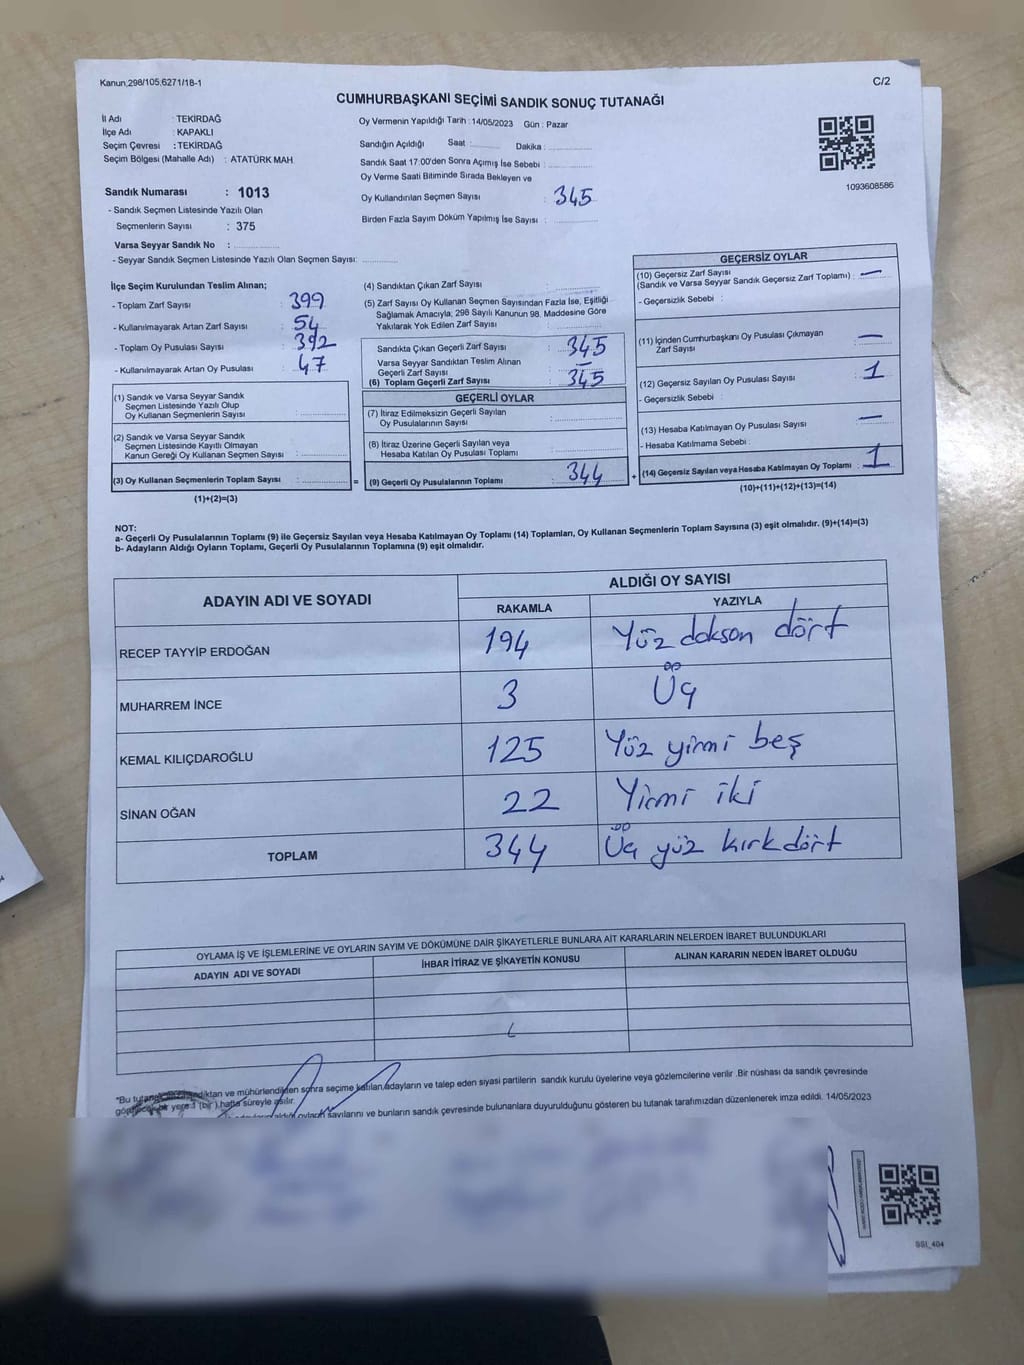 Kanun,298/105,6271/18-1
C/2
CUMHURBAŞKANI SEÇİMİ SANDIK SONUÇ TUTANAĞI
İl Adı : TEKİRDAĞ
İlçe Adı : KAPAKLI
Seçim Çevresi : TEKİRDAĞ
Seçim Bölgesi (Mahalle Adı) : ATATÜRK MAH
Sandık Numarası : 1013
- Sandık Seçmen Listesinde Yazılı Olan
Seçmenlerin Sayısı : 375
Varsa Seyyar Sandık No : ............
- Seyyar Sandık Seçmen Listesinde Yazılı Olan Seçmen Sayısı: ............
Oy Vermenin Yapıldığı Tarih : 14/05/2023 Gün : Pazar
Sandığın Açıldığı Saat : ........ Dakika : ............
Sandık Saat 17:00'den Sonra Açımış İse Sebebi : ............
Oy Verme Saati Bitiminde Sırada Bekleyen ve
Oy Kullandırılan Seçmen Sayısı : 345
Birden Fazla Sayım Döküm Yapılmış İse Sayısı : ............
1093608586
İlçe Seçim Kurulundan Teslim Alınan;
- Toplam Zarf Sayısı : 399
- Kullanılmayarak Artan Zarf Sayısı : 54
- Toplam Oy Pusulası Sayısı : 392
- Kullanılmayarak Artan Oy Pusulası : 47
(1) Sandık ve Varsa Seyyar Sandık
Seçmen Listesinde Yazılı Olup
Oy Kullanan Seçmenlerin Sayısı : ............
(2) Sandık ve Varsa Seyyar Sandık
Seçmen Listesinde Kayıtlı Olmayan
Kanun Gereği Oy Kullanan Seçmen Sayısı : ............
(3) Oy Kullanan Seçmenlerin Toplam Sayısı : ............ =
(1)+(2)=(3)
(4) Sandıktan Çıkan Zarf Sayısı : ............
(5) Zarf Sayısı Oy Kullanan Seçmen Sayısından Fazla İse, Eşitliği
Sağlamak Amacıyla, 298 Sayılı Kanunun 98. Maddesine Göre
Yakılarak Yok Edilen Zarf Sayısı : ............
Sandıkta Çıkan Geçerli Zarf Sayısı : 345
Varsa Seyyar Sandıktan Teslim Alınan
Geçerli Zarf Sayısı : —
(6) Toplam Geçerli Zarf Sayısı : 345
GEÇERLİ OYLAR
(7) İtiraz Edilmeksizin Geçerli Sayılan
Oy Pusulalarının Sayısı : ............
(8) İtiraz Üzerine Geçerli Sayılan veya
Hesaba Katılan Oy Pusulası Toplamı : ............
(9) Geçerli Oy Pusulalarının Toplamı : 344 +
GEÇERSİZ OYLAR
(10) Geçersiz Zarf Sayısı
(Sandık ve Varsa Seyyar Sandık Geçersiz Zarf Toplamı) : —
- Geçersizlik Sebebi :
(11) İçinden Cumhurbaşkanı Oy Pusulası Çıkmayan
Zarf Sayısı : —
(12) Geçersiz Sayılan Oy Pusulası Sayısı : 1
- Geçersizlik Sebebi :
(13) Hesaba Katılmayan Oy Pusulası Sayısı : —
- Hesaba Katılmama Sebebi :
(14) Geçersiz Sayılan veya Hesaba Katılmayan Oy Toplamı : 1
(10)+(11)+(12)+(13)=(14)
NOT:
a- Geçerli Oy Pusulalarının Toplamı (9) ile Geçersiz Sayılan veya Hesaba Katılmayan Oy Toplamı (14) Toplamları, Oy Kullanan Seçmenlerin Toplam Sayısına (3) eşit olmalıdır. (9)+(14)=(3)
b- Adayların Aldığı Oyların Toplamı, Geçerli Oy Pusulalarının Toplamına (9) eşit olmalıdır.
ADAYIN ADI VE SOYADI ALDIĞI OY SAYISI
RAKAMLA YAZIYLA
RECEP TAYYİP ERDOĞAN 194 Yüz doksan dört
MUHARREM İNCE 3 Üç
KEMAL KILIÇDAROĞLU 125 Yüz yirmi beş
SİNAN OĞAN 22 Yirmi iki
TOPLAM 344 Üç yüz kırkdört
OYLAMA İŞ VE İŞLEMLERİNE VE OYLARIN SAYIM VE DÖKÜMÜNE DAİR ŞİKAYETLERLE BUNLARA AİT KARARLARIN NELERDEN İBARET BULUNDUKLARI
ADAYIN ADI VE SOYADI İHBAR İTİRAZ VE ŞİKAYETİN KONUSU ALINAN KARARIN NEDEN İBARET OLDUĞU
*Bu ve mühürlendikten sonra seçime katılan,adayların ve talep eden siyasi partilerin sandık kurulu üyelerine veya gözlemcilerine verilir .Bir nüshası da sandık çevresinde
bir yere 1 (bir ) hafta süreyle asılır.
sayılarını ve bunların sandık çevresinde bulunanlara duyurulduğunu gösteren bu tutanak tarafımızdan düzenlenerek imza edildi. 14/05/2023
SSI_404